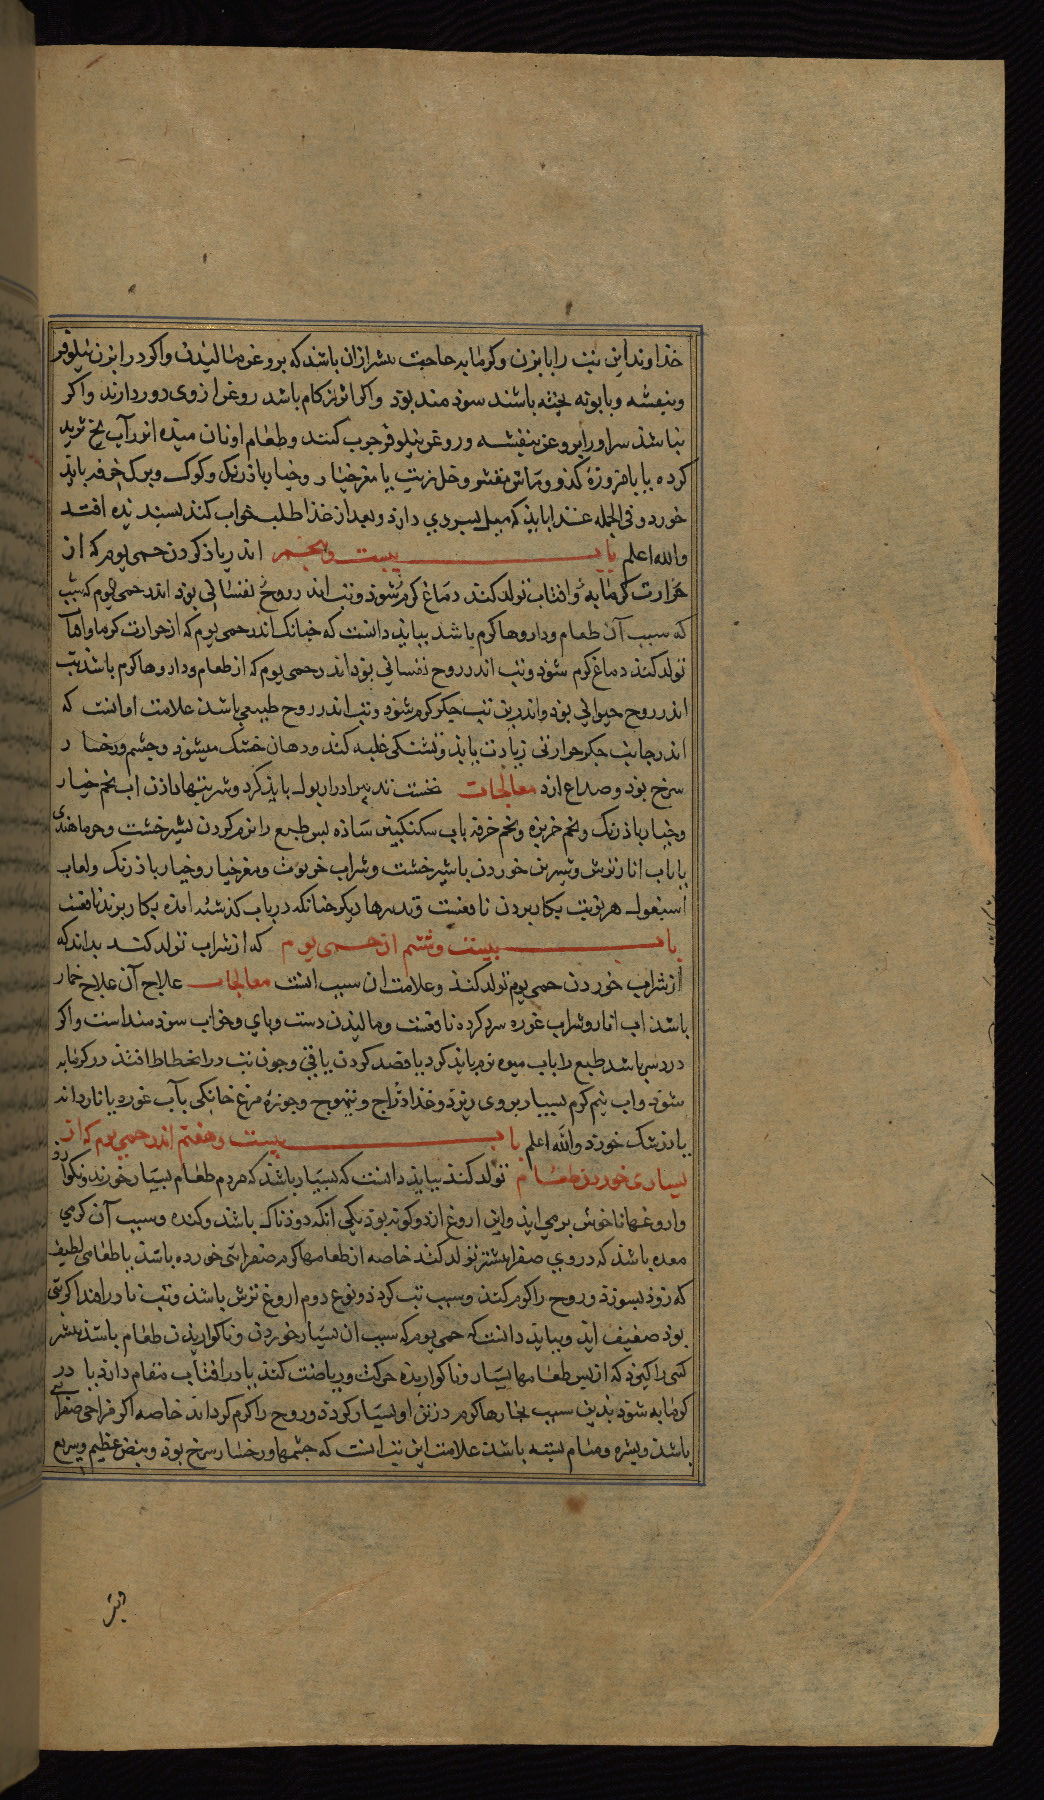 خذاوند این تب را بابزن و کرمابه حاجت بیشتر ازان باشد که بروغن مالیدن واکر در ابزن نیلوفر
وبنفشه وبابونه پخته باشند سوذ مند بوذ واکر اثر زکام باشد روغن از وی دور دارند واکر
نباشذ سر اورا بروغن بنفشه وروغن نیلوفر جرب کنند وطعام او نان میده اندر آب یخ ثرید
کرده یا با مزوره کذو وماش مقشر وخل زیت با مغز خیار وخیار باذرنک وکوک وبرک خرفه باید
خورد وفی الجمله غذا باید که میل بسردی دارد وبعد از غذا طلب خواب کند پسندیده افتد
والله اعلم باب بیست وپنجم اندر یاذ کردن حمی یوم که از
حرارت کرمابه وافتاب تولد کند دماغ کرم شوذ وتب اندر روح نفسانی بوذ اندر حمی یوم که سبب
که سبب آن طعام وداروها کرم باشد بباید دانست که جنانک اندر حمی یوم که از حرارت کرماواها
تولد کند دماغ کرم شوذ وتب اندر روح نفسانی بوذ اندر حمی یوم که از طعام وداروها کرم باشد تب
اندر روح حیوانی بوذ واندرین تب جکر کرم شوذ وتب اندر روح طبیعی باشد علامت او انست که
اندر جانب جکر حرارتی زیادت یابذ وتشنکی غلبه کند ودهان خشک میشوذ وجشم ورخسار
سرخ بوذ وصداع ارد معالجات نخست تدبیر ادرار بول باید کرد وشربتها دادن اب تخم خیار
وخیار باذرنک وتخم خربزه وتخم خرفه باب سکنکبین ساذه پس طبع را نرم کردن بشیر خشت وخرما هندی
یا باب انار ترش وشیرین خوردن با شیر خشت وشراب خربوت ومغز خیار وخیار باذرنک ولعاب
اسبغول هر نوبت بکار بردن نافعست وتدبیرها دیکر جنانکه در باب کذشته امده بکار برند نافعست
باب بیست وششم از حمی یوم که از شراب تولد کند بداند که
از شراب خوردن حمی یوم تولد کند وعلامت ان سبب انست معالجات علاج آن علاج خمار
باشد اب انار وشراب غوره سرد کرده نافعست ومالیدن دست وپای وخواب سوذ منداست واکر
درد سر باشد طبع را باب میوه نرم باید کرد یا فصد کردن یا قی وجون تب در انحطاط افتد در کرمابه
شوذ واب نیم کرم بسیار بر وی ریزد وغذا دراج وتیهوج وجوزه مرغ خانکی بآب غوره یا ناردانه
یا زرشک خورد والله اعلم باب بیست وهفتم اندر حمی یوم که از
بسیاری خوردن طعام تولد کند بباید دانست که بسیار باشد که مردم طعام بسیار خورند ونکوارد
واروغها ناخوش برمی اید واین اروغ از دو کونه بوذ یکی انکه دوذناک باشد وکنده وسبب آن کرمی
معده باشد که در وی صفرا بیشتر تولد کند خاصه از طعامها کرم صفرائی خورده باشد یا طعامی لطیف
که زوذ بسوزد وروح را کرم کند وسبب تب کردد ونوع دوم اروغ ترش باشد وتب نادر افتد اکر تبی
بوذ ضعیف اید وبباید دانست که حمی یوم که سبب ان بسیار خوردن وناکواریدن طعام باشد بیشتر
کسی را کیرد که از پس طعامها بسیار وناکوارده حرکت وریاضت کند یا در افتاب مقام دارد یا در
کرمابه شوذ بدین سبب بخارها کرم در تن او بسیار کردد وروح را کرم کرداند خاصه اکر مزاجی صفرائی
باشد وبشره ومسام بسته باشد علامت این تب انست که جشمها ورخسار سرخ بوذ ونبض عظیم وسریع